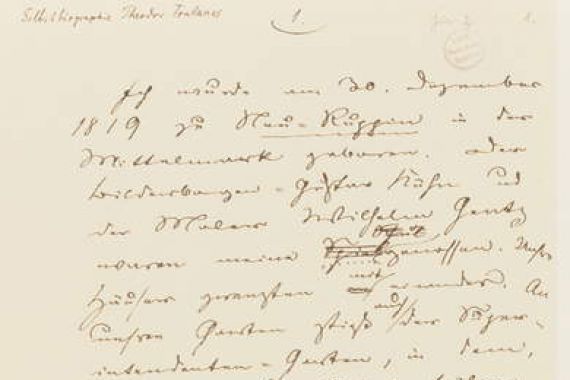 Selbstbiographie Theodor Fontanes
1.
1.
Ich wurde am 30. Dezember
1819 zu Neu-Ruppin in der
Mittelmark geboren. Der
Bilderbogen-Gustav Kühn und
der Maler Wilhelm Gentz
waren meine Schulgenossen. Unsre
Häuser grenzten mit einander. An
unsren Garten stieß auch der Super-
intendenten-Garten, in dem,